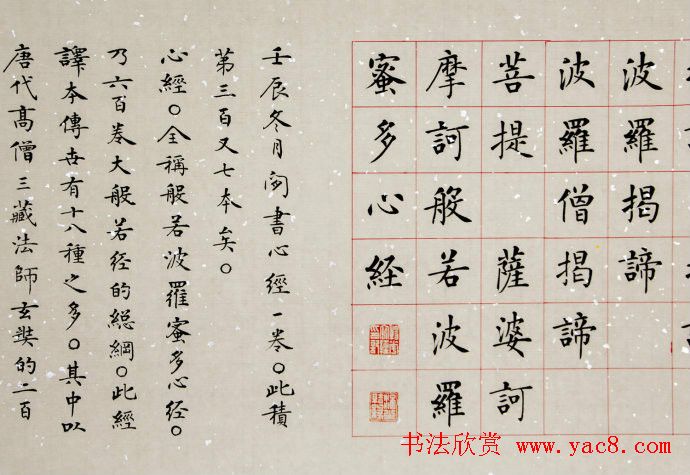 波羅揭諦
波羅僧揭諦
菩提 薩婆訶
摩訶般若波羅
蜜多心经
壬辰冬月書心經一卷。此積
第三百又七本矣。
心經。全稱般若波羅蜜多心经。
乃六百卷大般若经的総綱。此經
譯本傳世有十八種之多。其中以
唐代高僧三藏法師玄奘的二百
书法欣赏 www.yac8.com